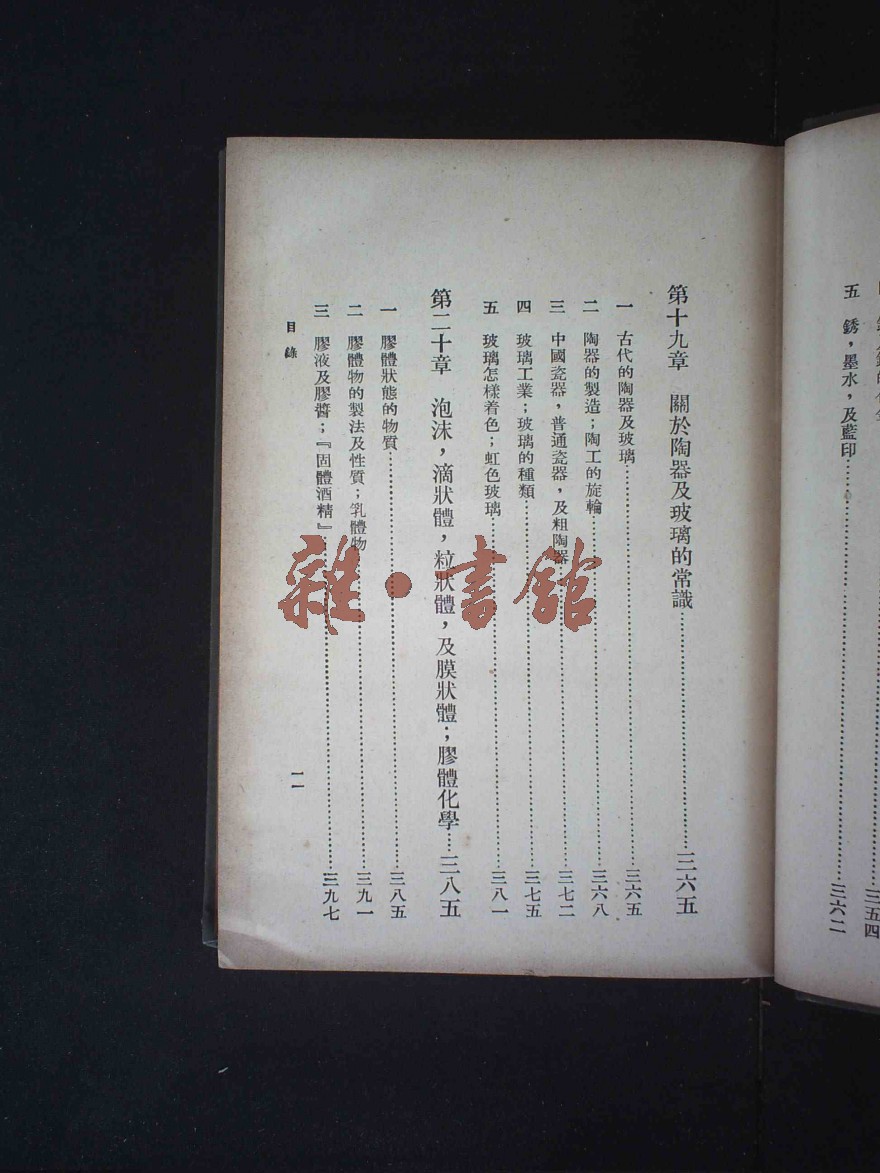 三五四
五　銹，墨水，及藍印……三六二
第十九章　關於陶器及玻璃的常識……三六五
一　古代的陶器及玻璃……三六五
二　陶器的製造；陶工的旋輪……三六八
三　中國瓷器，普通瓷器，及粗陶器……三七二
四　玻璃工業；玻璃的種類……三七五
五　玻璃怎樣着色；虹色玻璃……三八一
第二十章　泡沫，滴狀體，粒狀體，及膜狀體；膠體化學……三八五
一　膠體狀態的物質……三八五
二　膠體物的製法及性質；乳體物……三九一
三　膠液及膠醬；『固體酒精』……三九七
目錄
一一
雜·書館